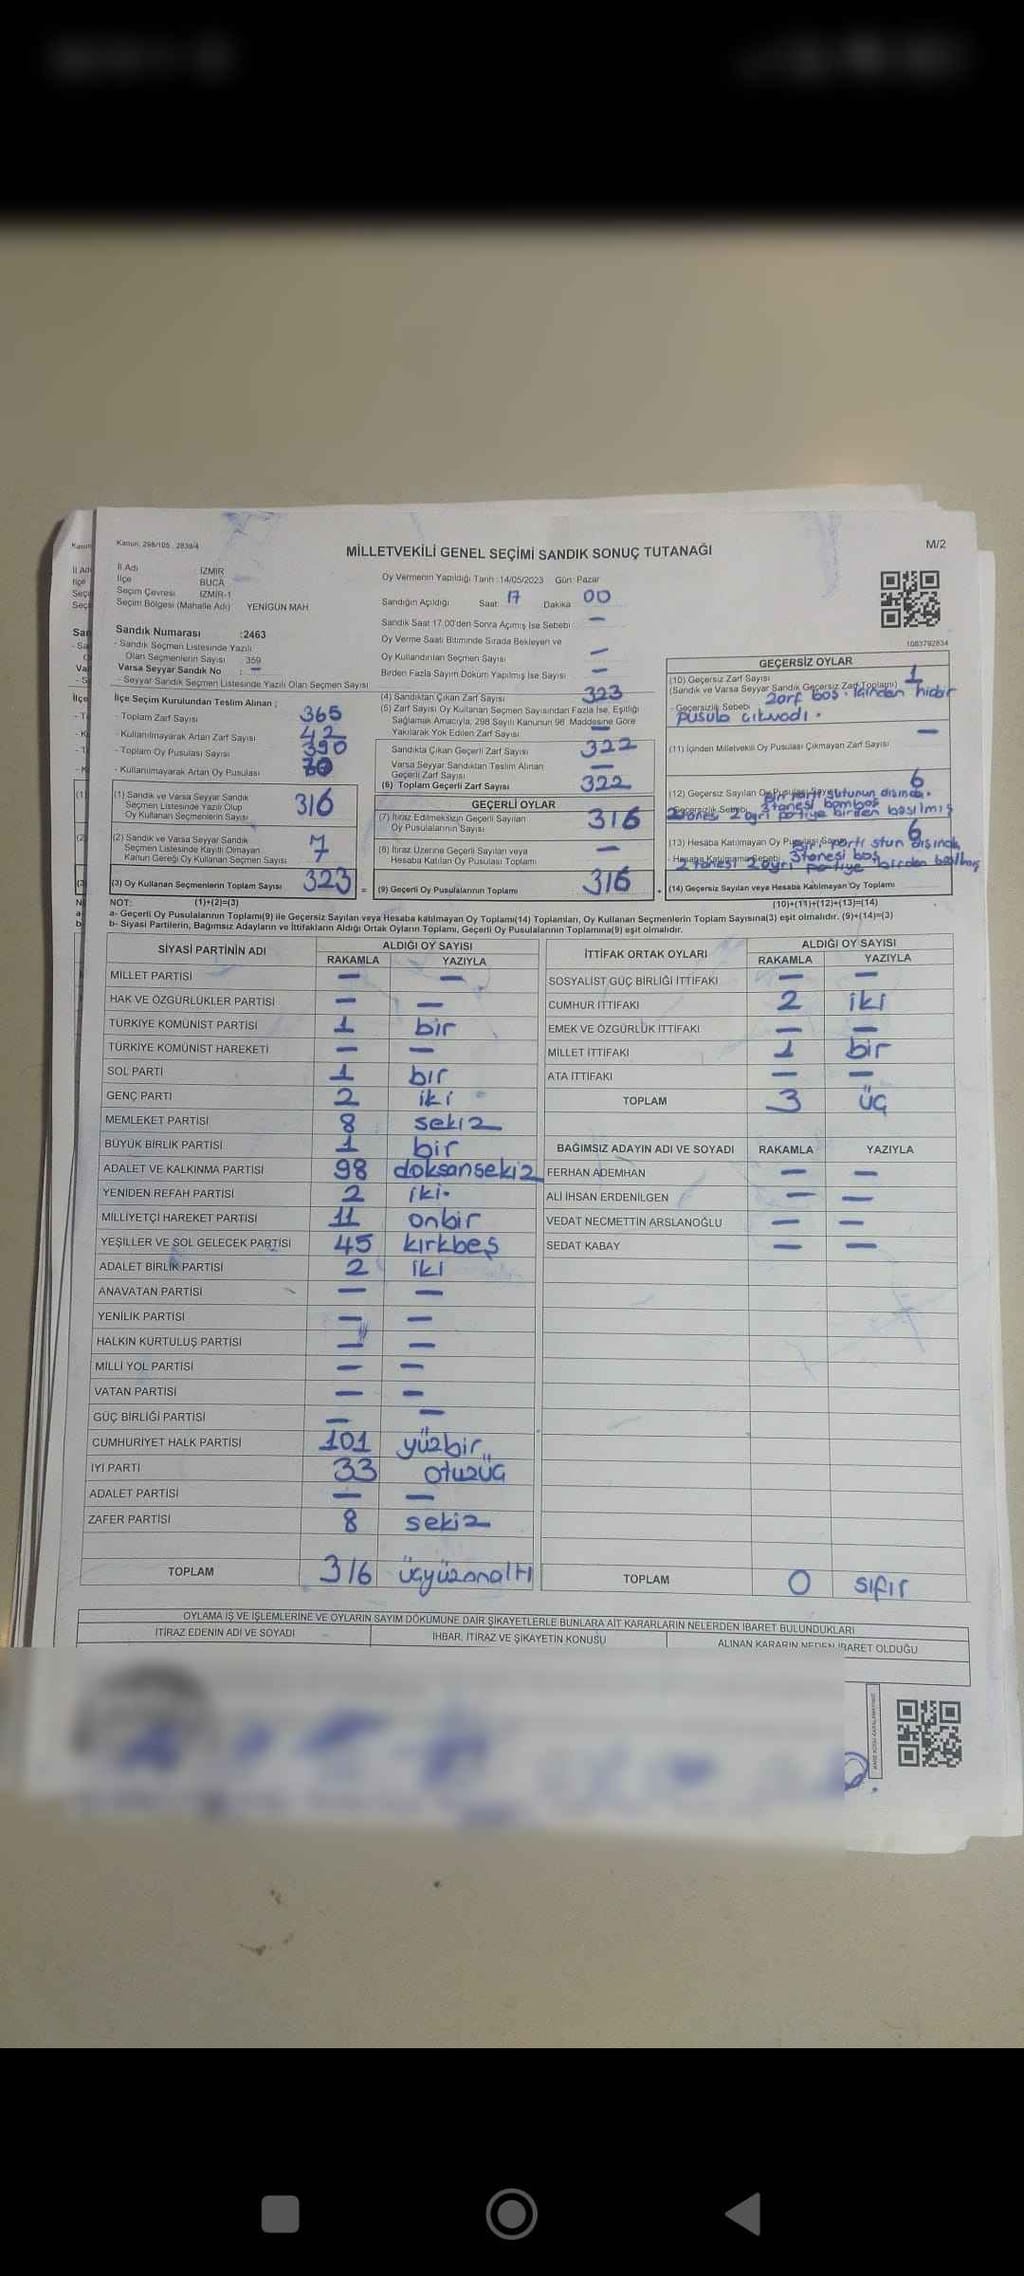 Kanun: 298/105 2839/4
MİLLETVEKİLİ GENEL SEÇİMİ SANDIK SONUÇ TUTANAĞI
M/2
İl Adı İZMİR
İlçe BUCA
Seçim Çevresi İZMİR-1
Seçim Bölgesi (Mahalle Adı) YENİGÜN MAH
Sandık Numarası :2463
- Sandık Seçmen Listesinde Yazılı
Olan Seçmenlerin Sayısı 359
Varsa Seyyar Sandık No : —
- Seyyar Sandık Seçmen Listesinde Yazılı Olan Seçmen Sayısı
Oy Vermenin Yapıldığı Tarih :14/05/2023 Gün: Pazar
Sandığın Açıldığı Saat: 17 Dakika 00
Sandık Saat 17.00'den Sonra Açımış İse Sebebi —
Oy Verme Saati Bitiminde Sırada Bekleyen ve
Oy Kullandırılan Seçmen Sayısı —
Birden Fazla Sayım Döküm Yapılmış İse Sayısı —
1083792834
İlçe Seçim Kurulundan Teslim Alınan ;
- Toplam Zarf Sayısı 365
- Kullanılmayarak Artan Zarf Sayısı 42
- Toplam Oy Pusulası Sayısı 390
- Kullanılmayarak Artan Oy Pusulası
(1) Sandık ve Varsa Seyyar Sandık
Seçmen Listesinde Yazılı Olup
Oy Kullanan Seçmenlerin Sayısı 316
(2) Sandık ve Varsa Seyyar Sandık
Seçmen Listesinde Kayıtlı Olmayan
Kanun Gereği Oy Kullanan Seçmen Sayısı 7
(3) Oy Kullanan Seçmenlerin Toplam Sayısı 323 =
(4) Sandıktan Çıkan Zarf Sayısı 323
(5) Zarf Sayısı Oy Kullanan Seçmen Sayısından Fazla İse, Eşitliği
Sağlamak Amacıyla, 298 Sayılı Kanunun 98. Maddesine Göre
Yakılarak Yok Edilen Zarf Sayısı —
Sandıkta Çıkan Geçerli Zarf Sayısı 322
Varsa Seyyar Sandıktan Teslim Alınan
Geçerli Zarf Sayısı —
(6) Toplam Geçerli Zarf Sayısı 322
GEÇERLİ OYLAR
(7) İtiraz Edilmeksizin Geçerli Sayılan
Oy Pusulalarının Sayısı 316
(8) İtiraz Üzerine Geçerli Sayılan veya
Hesaba Katılan Oy Pusulası Toplamı —
(9) Geçerli Oy Pusulalarının Toplamı 316
GEÇERSİZ OYLAR
(10) Geçersiz Zarf Sayısı 1
(Sandık ve Varsa Seyyar Sandık Geçersiz Zarf Toplamı)
- Geçersizlik Sebebi Zarf boş. İçinden hiçbir
pusula çıkmadı.
(11) İçinden Milletvekili Oy Pusulası Çıkmayan Zarf Sayısı —
(12) Geçersiz Sayılan Oy Pusulası Sayısı 6
Bir parti sütunun dışında.
Geçersizlik Sebebi 3 tanesi bomboş
2 tanesi 2 ayrı partiye birden basılmış
(13) Hesaba Katılmayan Oy Pusulası Sayısı 6
Biri parti stun dışında
- Hesaba Katılmama Sebebi 3 tanesi boş
2 tanesi 2 ayrı partiye birden basılmış
(14) Geçersiz Sayılan veya Hesaba Katılmayan Oy Toplamı
NOT: (1)+(2)=(3) (10)+(11)+(12)+(13)=(14)
a- Geçerli Oy Pusulalarının Toplamı(9) ile Geçersiz Sayılan veya Hesaba katılmayan Oy Toplamı(14) Toplamları, Oy Kullanan Seçmenlerin Toplam Sayısına(3) eşit olmalıdır. (9)+(14)=(3)
b- Siyasi Partilerin, Bağımsız Adayların ve İttifakların Aldığı Ortak Oyların Toplamı, Geçerli Oy Pusulalarının Toplamına(9) eşit olmalıdır.
SİYASİ PARTİNİN ADI ALDIĞI OY SAYISI
RAKAMLA YAZIYLA
MİLLET PARTİSİ — —
HAK VE ÖZGÜRLÜKLER PARTİSİ — —
TÜRKİYE KOMÜNİST PARTİSİ 1 bir
TÜRKİYE KOMÜNİST HAREKETİ — —
SOL PARTİ 1 bir
GENÇ PARTİ 2 iki
MEMLEKET PARTİSİ 8 sekiz
BÜYÜK BİRLİK PARTİSİ 1 bir
ADALET VE KALKINMA PARTİSİ 98 doksansekiz
YENİDEN REFAH PARTİSİ 2 iki.
MİLLİYETÇİ HAREKET PARTİSİ 11 onbir
YEŞİLLER VE SOL GELECEK PARTİSİ 45 kırkbeş
ADALET BİRLİK PARTİSİ 2 iki
ANAVATAN PARTİSİ — —
YENİLİK PARTİSİ — —
HALKIN KURTULUŞ PARTİSİ — —
MİLLİ YOL PARTİSİ — —
VATAN PARTİSİ — —
GÜÇ BİRLİĞİ PARTİSİ — —
CUMHURİYET HALK PARTİSİ 101 yüzbir
İYİ PARTİ 33 otuzüç
ADALET PARTİSİ — —
ZAFER PARTİSİ 8 sekiz
TOPLAM 316 üçyüzonaltı
İTTİFAK ORTAK OYLARI ALDIĞI OY SAYISI
RAKAMLA YAZIYLA
SOSYALİST GÜÇ BİRLİĞİ İTTİFAKI — —
CUMHUR İTTİFAKI 2 iki
EMEK VE ÖZGÜRLÜK İTTİFAKI — —
MİLLET İTTİFAKI 1 bir
ATA İTTİFAKI — —
TOPLAM 3 üç
BAĞIMSIZ ADAYIN ADI VE SOYADI RAKAMLA YAZIYLA
FERHAN ADEMHAN — —
ALİ İHSAN ERDENİLGEN — —
VEDAT NECMETTİN ARSLANOĞLU — —
SEDAT KABAY — —
TOPLAM 0 sıfır
OYLAMA İŞ VE İŞLEMLERİNE VE OYLARIN SAYIM DÖKÜMÜNE DAİR ŞİKAYETLERLE BUNLARA AİT KARARLARIN NELERDEN İBARET BULUNDUKLARI
İTİRAZ EDENİN ADI VE SOYADI İHBAR, İTİRAZ VE ŞİKAYETİN KONUSU ALINAN KARARIN NEDEN İBARET OLDUĞU